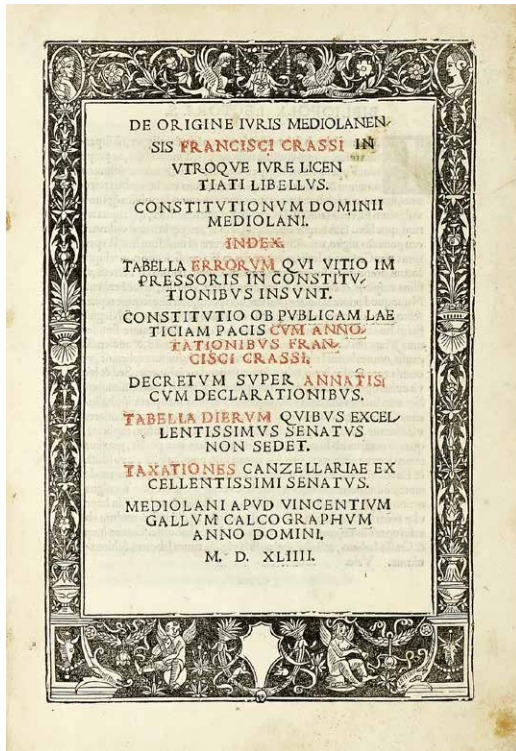 DE ORIGINE IVRIS MEDIOLANEN⸗
SIS FRANCISCI CRASSI IN
VTROQVE IVRE LICEN
TIATI LIBELLVS.
CONSTITVTIONVM DOMINII
MEDIOLANI.
INDEX.
TABELLA ERRORVM QVI VITIO IM
PRESSORIS IN CONSTITV⸗
TIONIBVS INSVNT.
CONSTITVTIO OB PVBLICAM LAE
TICIAM PACIS CVM ANNO⸗
TATIONIBVS FRAN⸗
CISCI CRASSI.
DECRETVM SVPER ANNATIS
CVM DECLARATIONIBVS.
TABELLA DIERVM QVIBVS EXCEL⸗
LENTISSIMVS SENATVS
NON SEDET.
TAXATIONES CANZELLARIAE EX
CELLENTISSIMI SENATVS.
MEDIOLANI APVD VINCENTIVM
GALLVM CALCOGRAPHVM
ANNO DOMINI.
M. D. XLIIII.